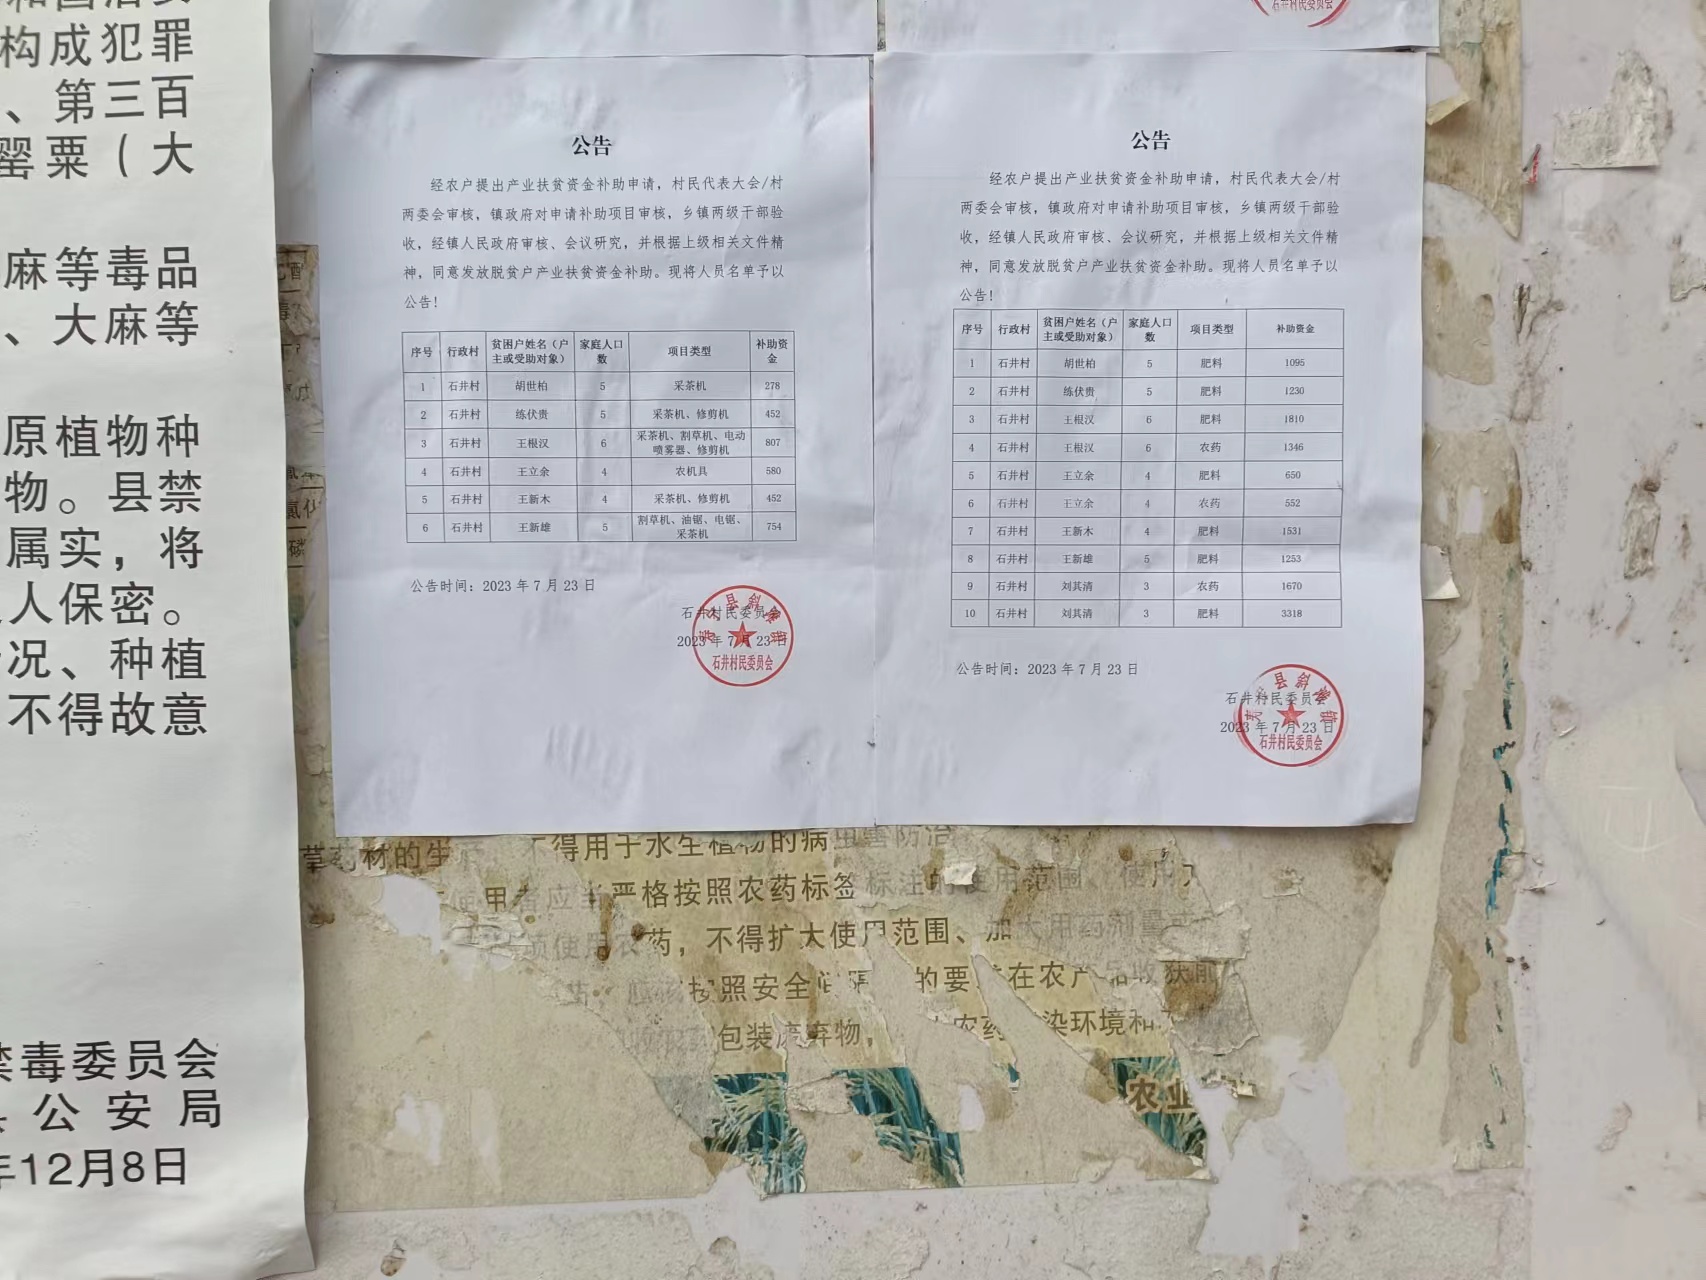 构成犯罪
、第三百
罂粟（大
麻等毒品
、大麻等
原植物种
物。县禁
属实，将
人保密。
况、种植
不得故意
禁毒委员会
公安局
年12月8日
公告
经农户提出产业扶贫资金补助申请，村民代表大会/村
两委会审核，镇政府对申请补助项目审核，乡镇两级干部验
收，经镇人民政府审核、会议研究，并根据上级相关文件精
神，同意发放脱贫户产业扶贫资金补助。现将人员名单予以
公告！
序号 行政村 贫困户姓名（户主或受助对象） 家庭人口数 项目类型 补助资金
1 石井村 胡世柏 5 采茶机 278
2 石井村 练伏贵 5 采茶机、修剪机 452
3 石井村 王根汉 6 采茶机、割草机、电动喷雾器、修剪机 807
4 石井村 王立余 4 农机具 580
5 石井村 王新木 4 采茶机、修剪机 452
6 石井村 王新雄 5 割草机、油锯、电锯、采茶机 754
公告时间：2023年7月23日
石井村民委员会
2023年7月23日
县斜滩镇
石井村民委员会
公告
经农户提出产业扶贫资金补助申请，村民代表大会/村
两委会审核，镇政府对申请补助项目审核，乡镇两级干部验
收，经镇人民政府审核、会议研究，并根据上级相关文件精
神，同意发放脱贫户产业扶贫资金补助。现将人员名单予以
公告！
序号 行政村 贫困户姓名（户主或受助对象） 家庭人口数 项目类型 补助资金
1 石井村 胡世柏 5 肥料 1095
2 石井村 练伏贵 5 肥料 1230
3 石井村 王根汉 6 肥料 1810
4 石井村 王根汉 6 农药 1346
5 石井村 王立余 4 肥料 650
6 石井村 王立余 4 农药 552
7 石井村 王新木 4 肥料 1531
8 石井村 王新雄 5 肥料 1253
9 石井村 刘其清 3 农药 1670
10 石井村 刘其清 3 肥料 3318
公告时间：2023年7月23日
石井村民委员会
2023年7月23日
县斜滩镇
石井村民委员会
草药材的生 不得用于水生植物的病虫害防治
使用者应当严格按照农药标签标注的使用范围、使用
使用农药，不得扩大使用范围、加大用药剂量或
按照安全间隔 的要 在农产品收获前
包装废弃物， 农药 染环境和
农业